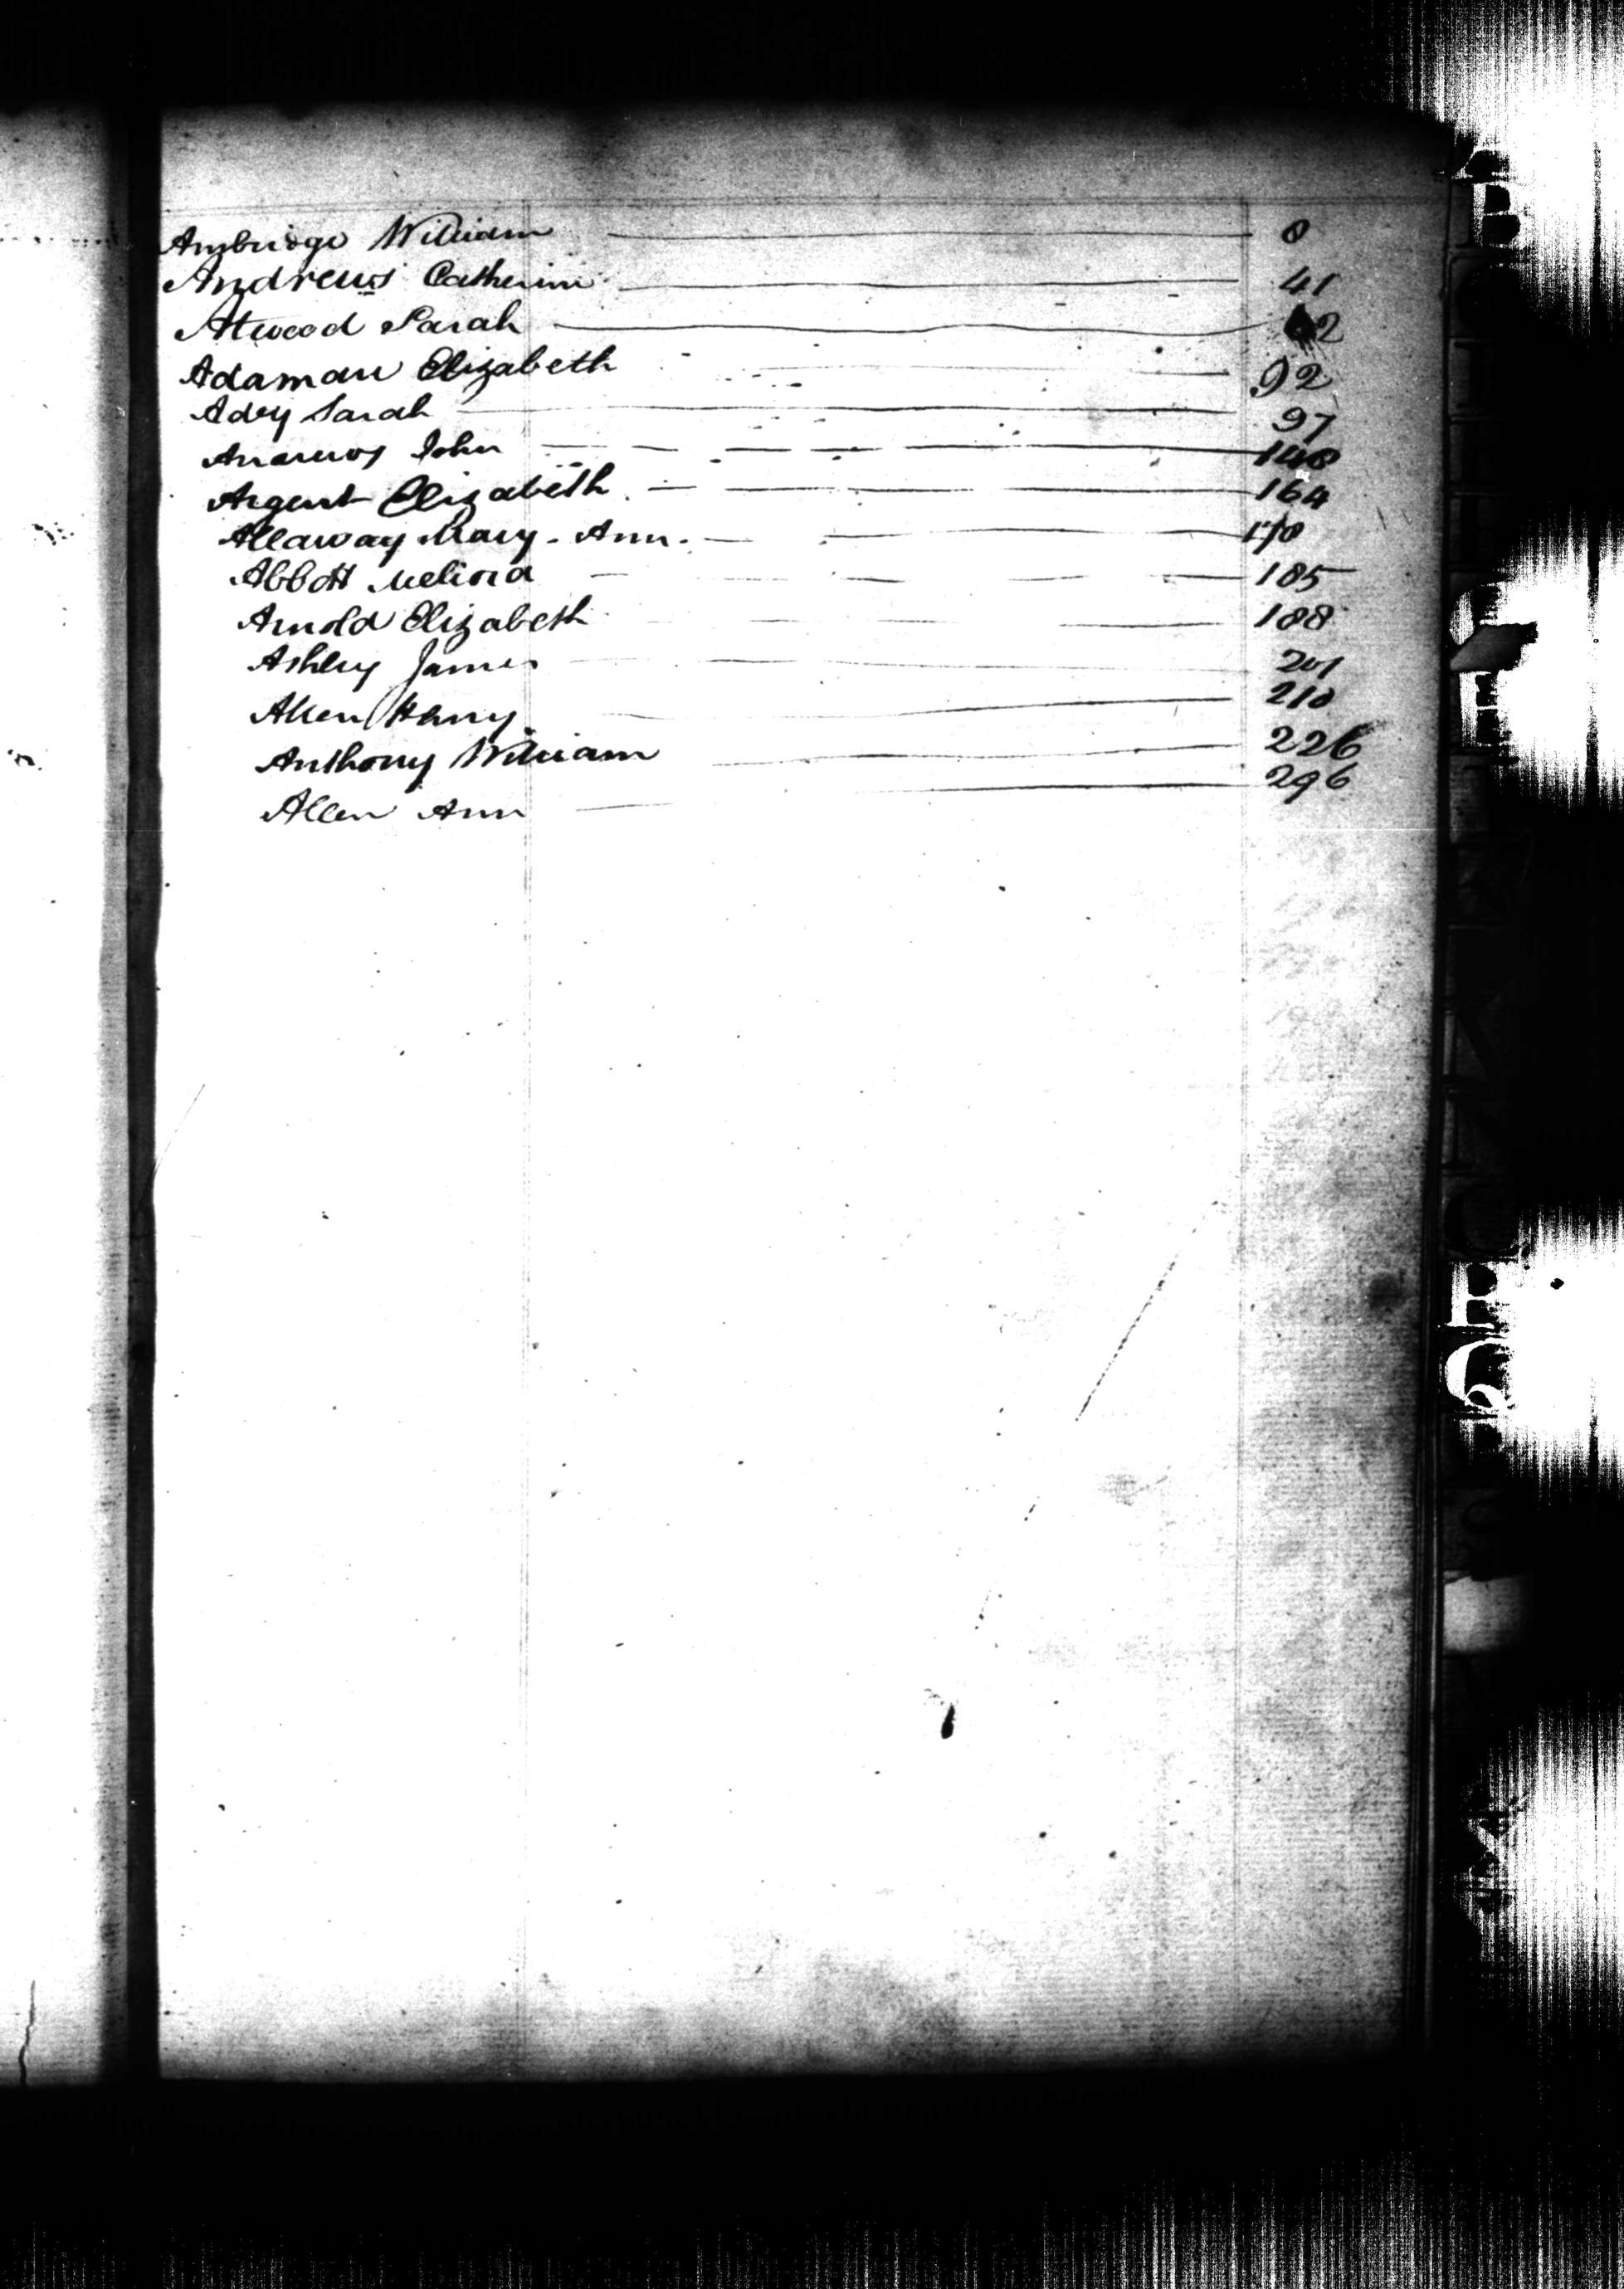 Ambridge William 8
Andrews Catherine 41
Atwood Sarah 2
Adaman Elizabeth 92
Adey Sarah 97
Andrews John 148
Argent Elizabeth 164
Allaway Mary-Ann. 178
Abbott Melinda 185
Arnold Elizabeth 188
Ashley James 201
Allen Henry 210
Anthony William 226
Allen Ann 296
B
P
Q